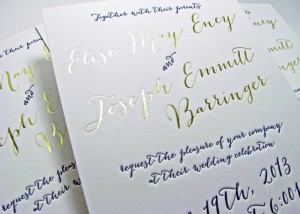 Together with their parents
Elise May Eney
and
Joseph Emmitt
Barringer
request the pleasure of your company
at their wedding celebration
19th, 2013
6:00
their parents
May
and
Joseph E
Ba
request the pleasure
at their